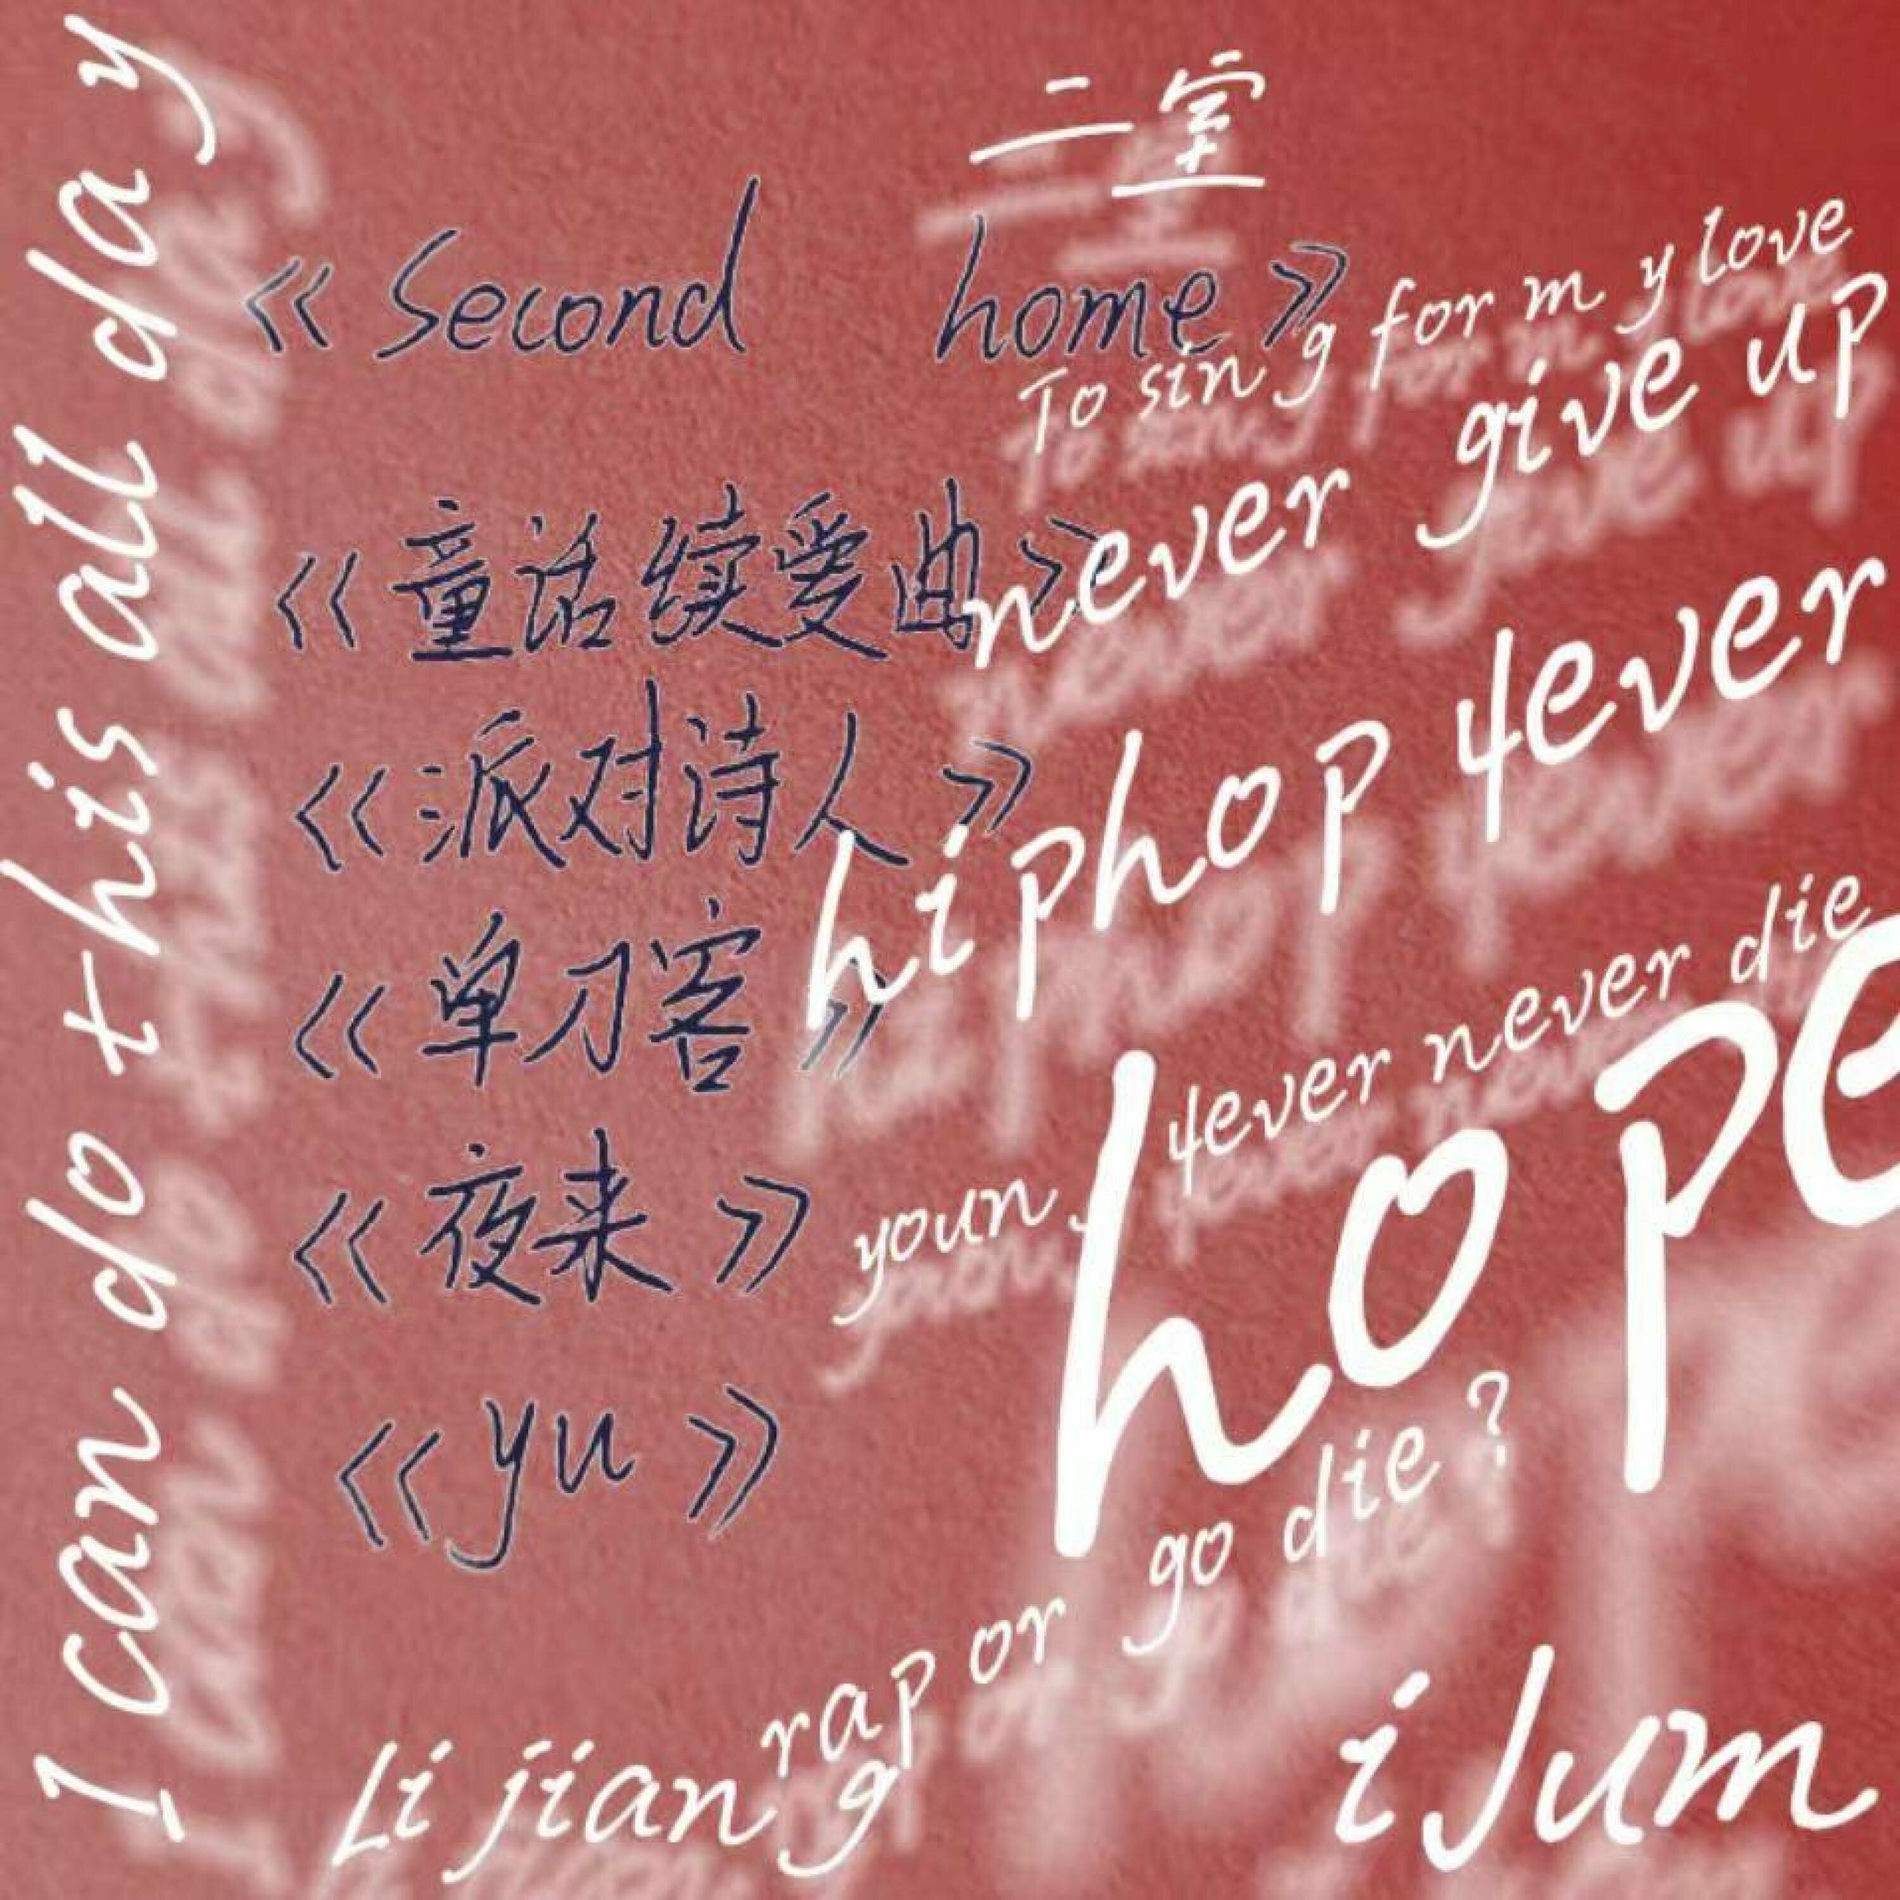 I can do this all day
二室
《Second home》
To sing for my love
never give up
《童话续爱曲》
《派对诗人》
hiphop 4ever
《单刀客》
young 4ever never die
hope
《夜来》
《yu》
rap or go die?
Li jiang
iJum